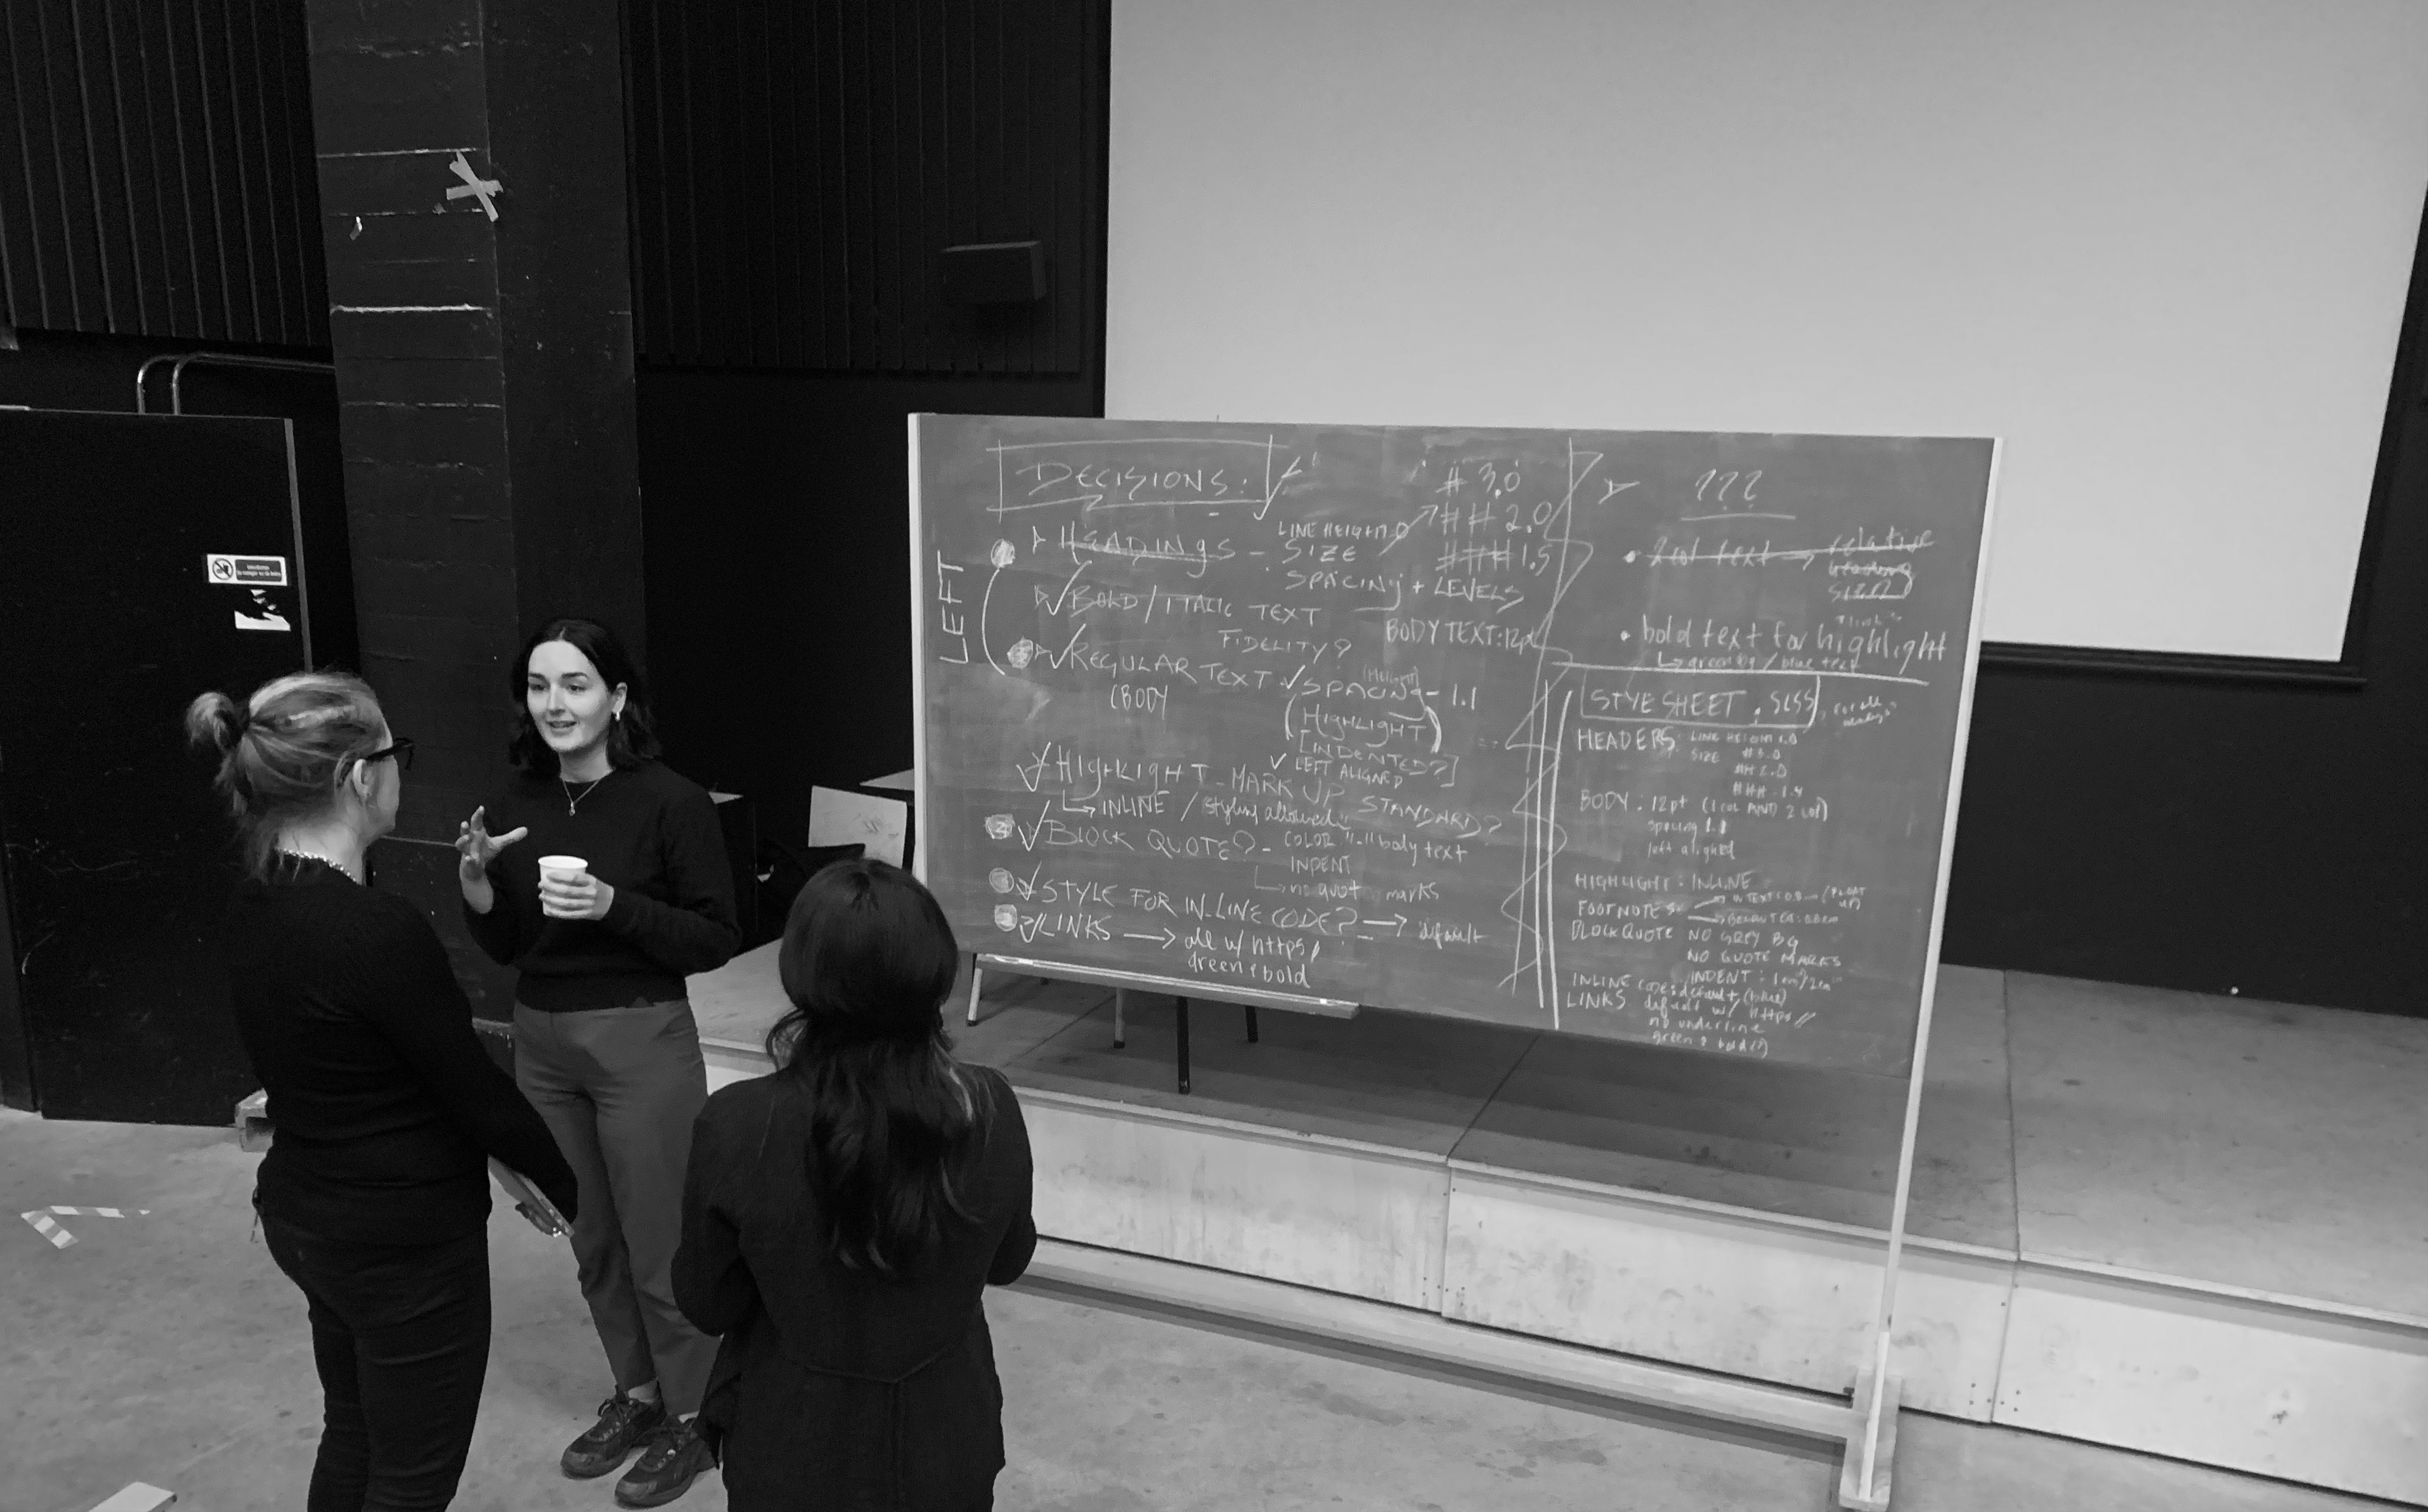 DECISIONS:
LEFT
HEADINGS - LINE HEIGHT 1.0
SIZE
SPACING + LEVELS
# 3.0
## 2.0
### 1.5
BOLD / ITALIC TEXT
FIDELITY?
BODY TEXT: 12pt
REGULAR TEXT SPACING - 1.1
(HEIGHT)
(BODY
(HIGHLIGHT)
[INDENTED?]
LEFT ALIGNED
HIGHLIGHT - MARK UP STANDARD?
INLINE / "styling allowed"
BLOCK QUOTE? - COLOR "-" body text
INDENT
no quot marks
STYLE FOR IN-LINE CODE? → default
LINKS → all w/ https//
green & bold
???
2col text → relative
• bold text for highlight
green bg / blue text
STYESHEET.SCSS
HEADERS: LINE HEIGHT 1.0
SIZE # 3.0
## 2.0
### 1.4
BODY: 12pt (1 col AND 2 col)
spacing 1.1
left aligned
HIGHLIGHT: INLINE
FOOTNOTES
BLOCKQUOTE NO GREY BG
NO QUOTE MARKS
INDENT: 1cm/2cm
INLINE CODE: default (blue)
LINKS default w/ https//
no underline
green & bold(?)